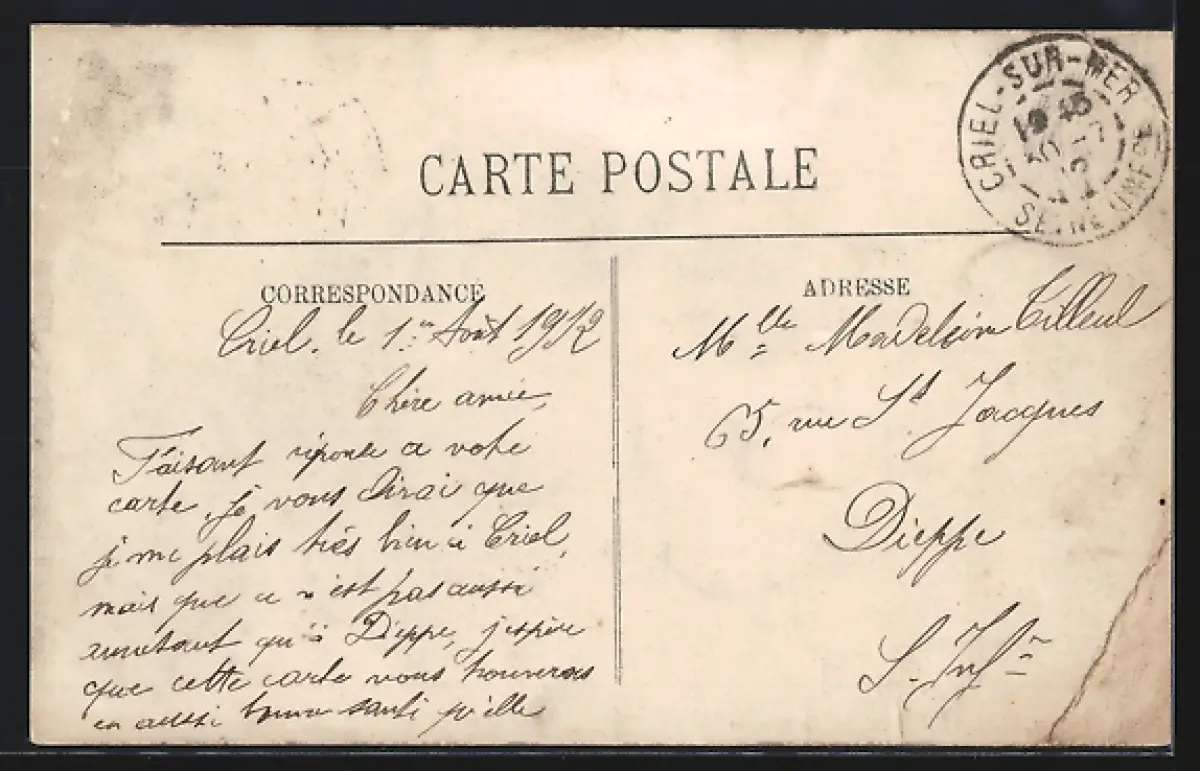 CARTE POSTALE
CRIEL-SUR-MER
SEINE INFRE
CORRESPONDANCE
ADRESSE
Criel, le 1er Août 1912
Chère amie,
Faisant réponse a votre
carte, je vous dirai que
je me plais très bien à Criel,
mais que ce n'est pas aussi
amusant qu'à Dieppe, j'espère
que cette carte vous trouveras
en aussi bonne santé qu'elle
Mlle Madeleine Tilleul
65, rue St Jacques
Dieppe
S. Infre